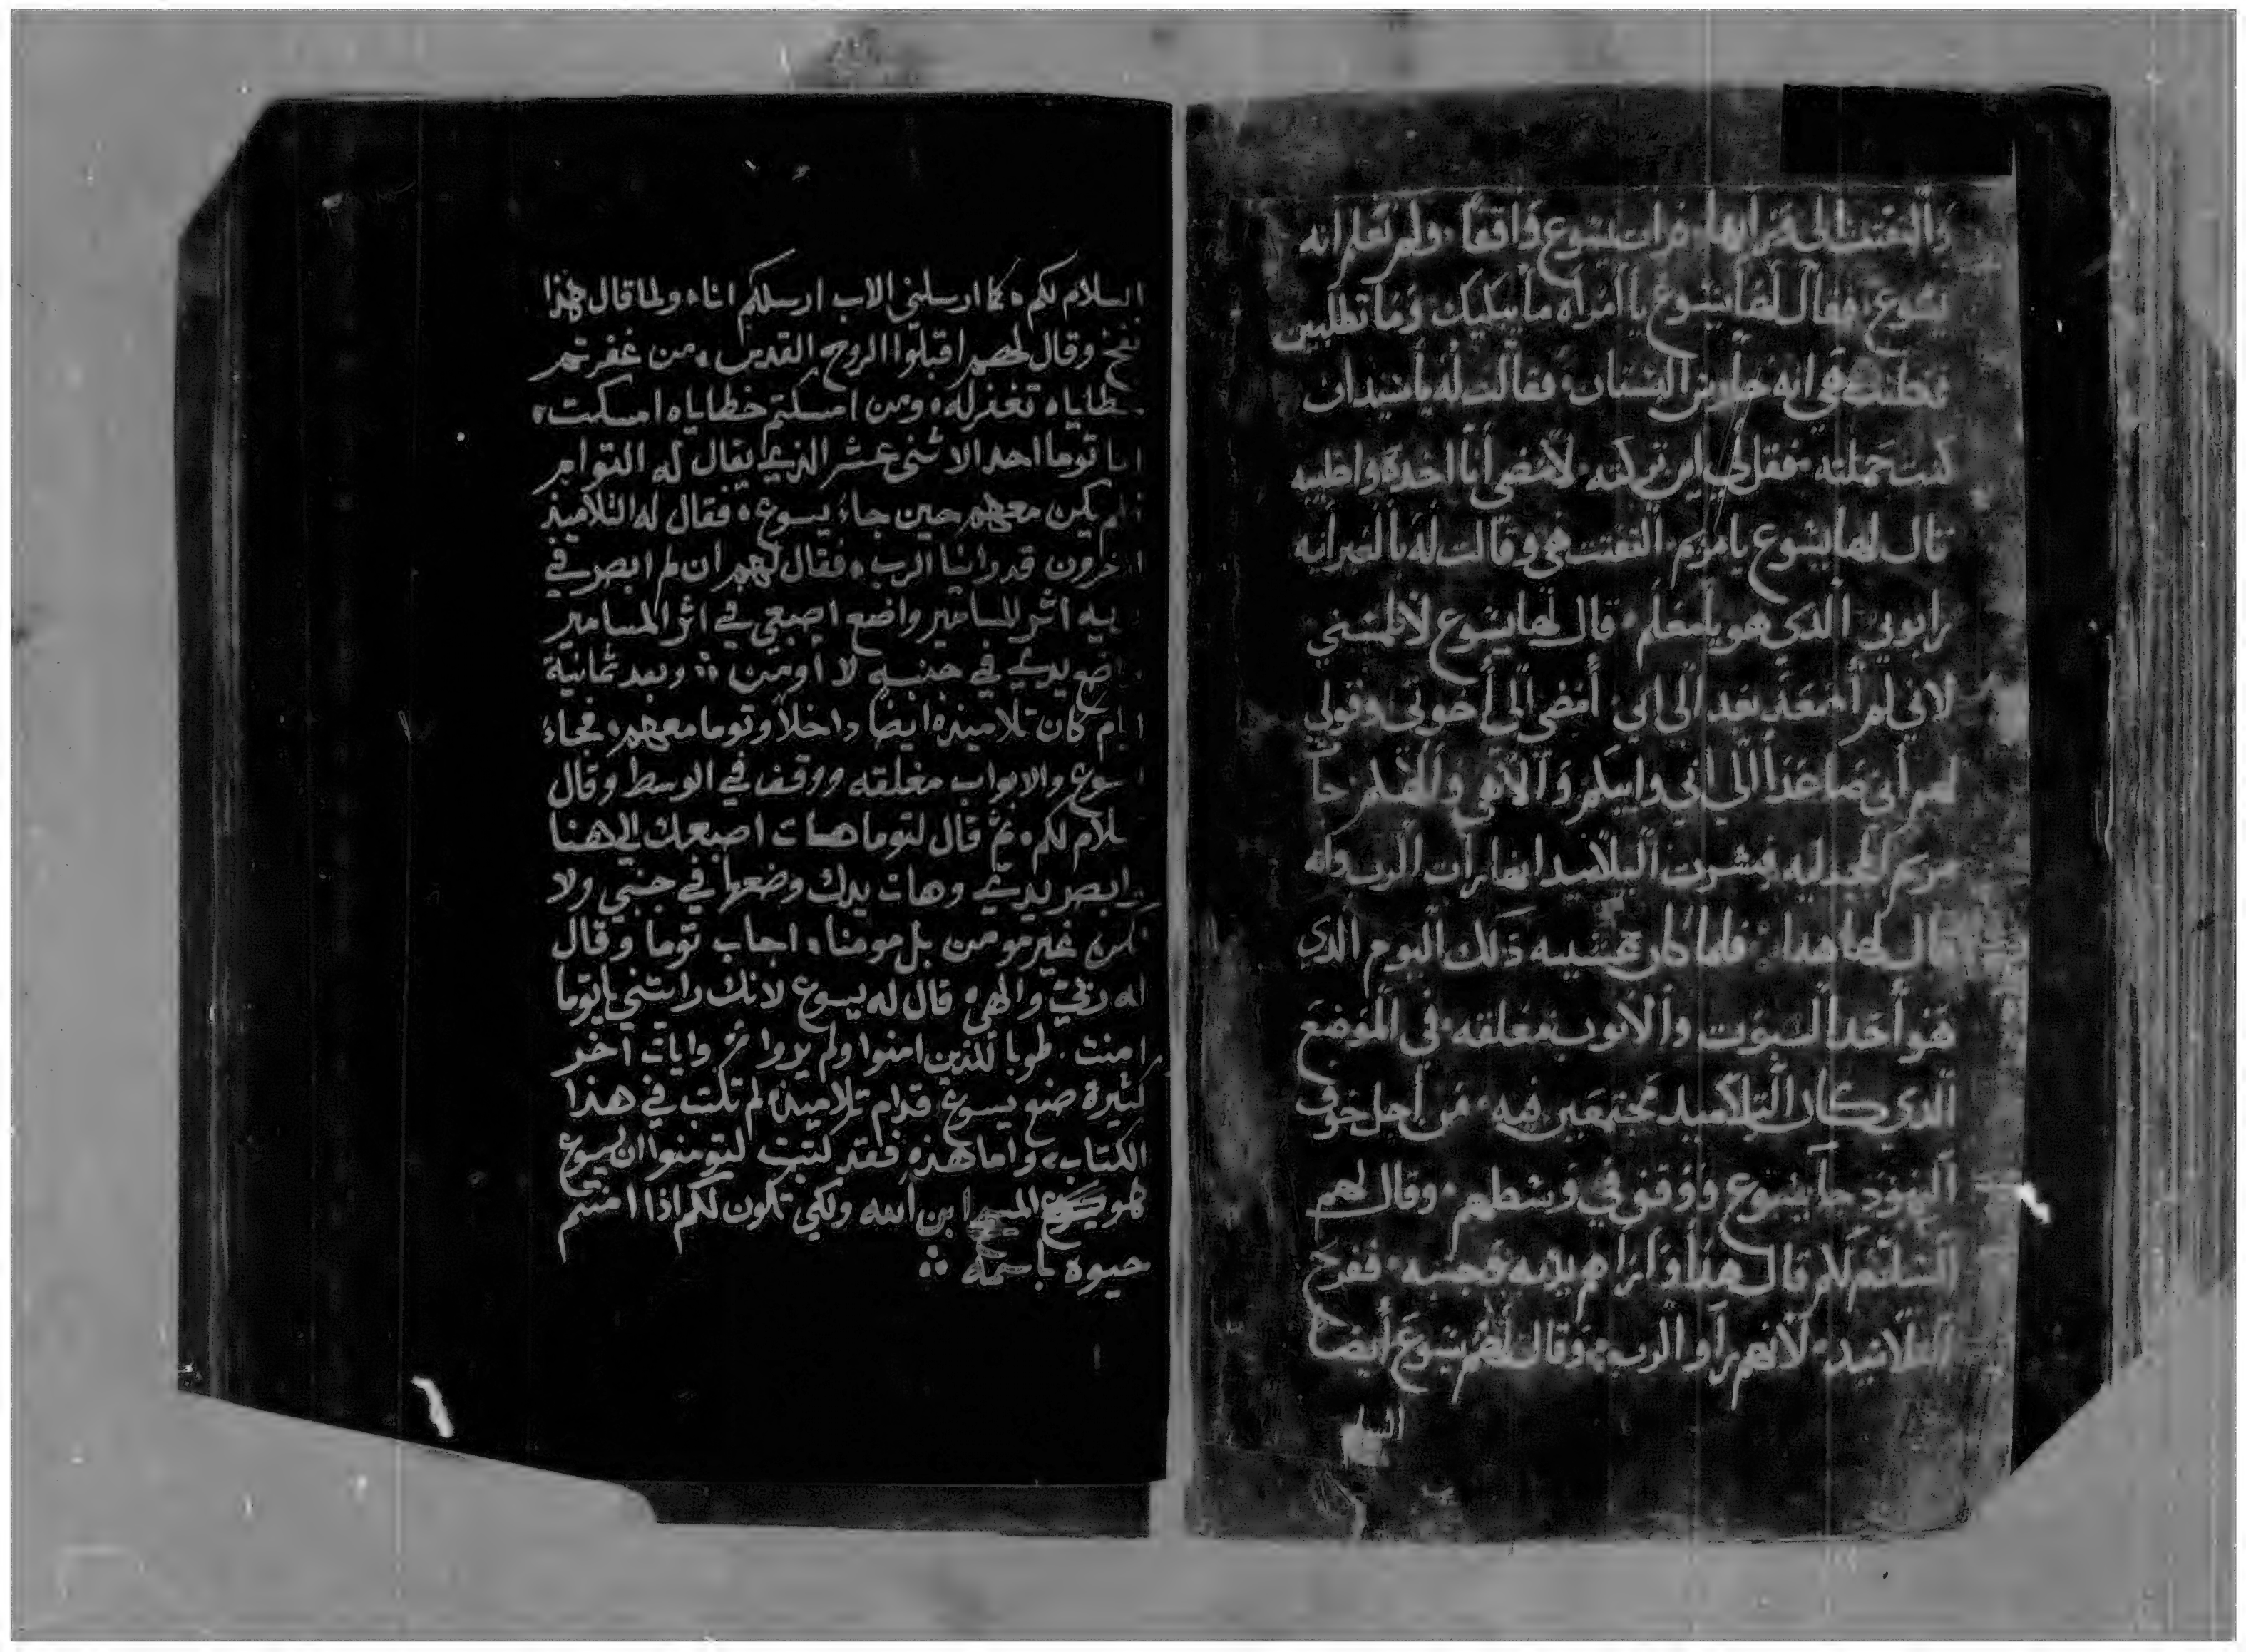 والتفتت الى ورايها. فرات يسوع واقفا. ولم تعلم انه
يسوع. فقال لها يسوع يا امراه ما يبكيك وما تطلبين
فظنت هي انه حارس البستان. فقالت له يا سيد ان
كنت حملته. فقل لي اين تركته. لامضي انا اخده واطيبه
قال لها يسوع يا مريم. التفتت هي وقالت له بالعبرانيه
رابوني الدي هو يا معلم. قال لها يسوع لا تلمسني
لاني لم أصعد بعد الى ابي. أمضي الى أخوتي وقولي
لهم أني صاعدا الى ابي وابيكم والاهي والاهكم جات
مريم المجدليه فبشرت التلاميد انها رات الرب وانه
قال لها هدا. فلما كان عشيه دلك اليوم الدي
هو أحد السبوت والأبوب مغلقه. في الموضع
الدي كان التلاميد مجتمعين فيه. من أجل خوف
اليهود جا يسوع ووقف في وسطهم. وقال لهم
السلام لكم قال هدا واراهم يديه وجنبه. ففرح
التلاميد. لانهم رأو الرب. وقال لهم يسوع أيضا
السلم
السلام لكم. كما ارسلني الاب ارسلكم انا. ولما قال هذا
نفخ وقال لهم اقبلوا الروح القدس. من غفرتم
خطاياه تغفر له. ومن امسكتم خطاياه امسكت.
اما توما احد الاثنى عشر الذي يقال له التوام
فلم يكن معهم حين جاء يسوع. فقال له التلاميذ
اخرون قد راينا الرب. فقال لهم ان لم ابصر في
يديه اثر المسامير واضع اصبعي في اثر المسامير
واضع يدي في جنبه لا أومن ؞ وبعد ثمانية
ايام كان تلاميذه ايضا داخلا وتوما معهم. فجاء
يسوع والابواب مغلقه ووقف في الوسط وقال
سلام لكم. ثم قال لتوما هات اصبعك الى هنا
وابصر يدي وهات يدك وضعها في جنبي ولا
تكن غير مومن بل مومنا. اجاب توما وقال
له ربي والهي. قال له يسوع لانك رايتني يا توما
امنت. طوبا للذين امنوا ولم يروا ثم وايات اخر
كثيرة صنع يسوع قدام تلاميذه لم تكتب في هذا
الكتاب. واما هذه فقد كتبت لتومنوا ان يسوع
هو المسيح ابن الله ولكي تكون لكم اذا امنتم
حيوة باسمه ؞